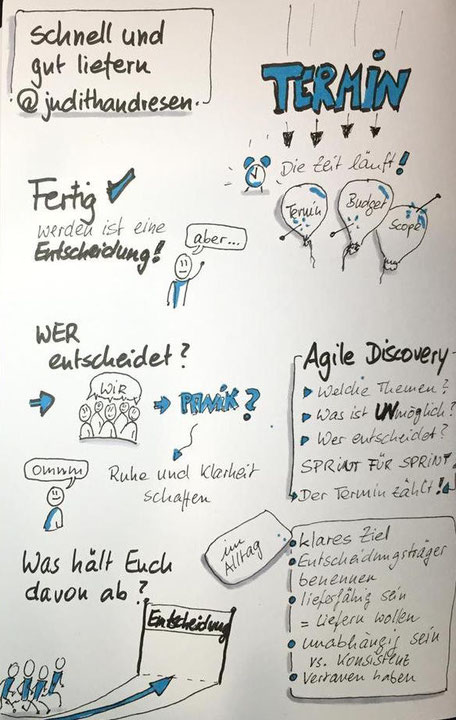 schnell und
gut liefern
@judithandresen.
TERMIN
Die Zeit läuft!
Termin
Budget
Scope
Fertig
werden ist eine
Entscheidung!
aber...
WER
entscheidet?
WIR
PANIK?
Ruhe und Klarheit
schaffen
Ommm
Agile Discovery
Welche Themen?
Was ist UNmöglich?
Wer entscheidet?
SPRINT FÜR SPRINT!
Der Termin zählt!
im
Alltag
klares Ziel
Entscheidungsträger
benennen
lieferfähig sein
= liefern wollen
unabhängig sein
vs. Konsistent
Vertrauen haben
Was hält Euch
davon ab?
Entscheidung